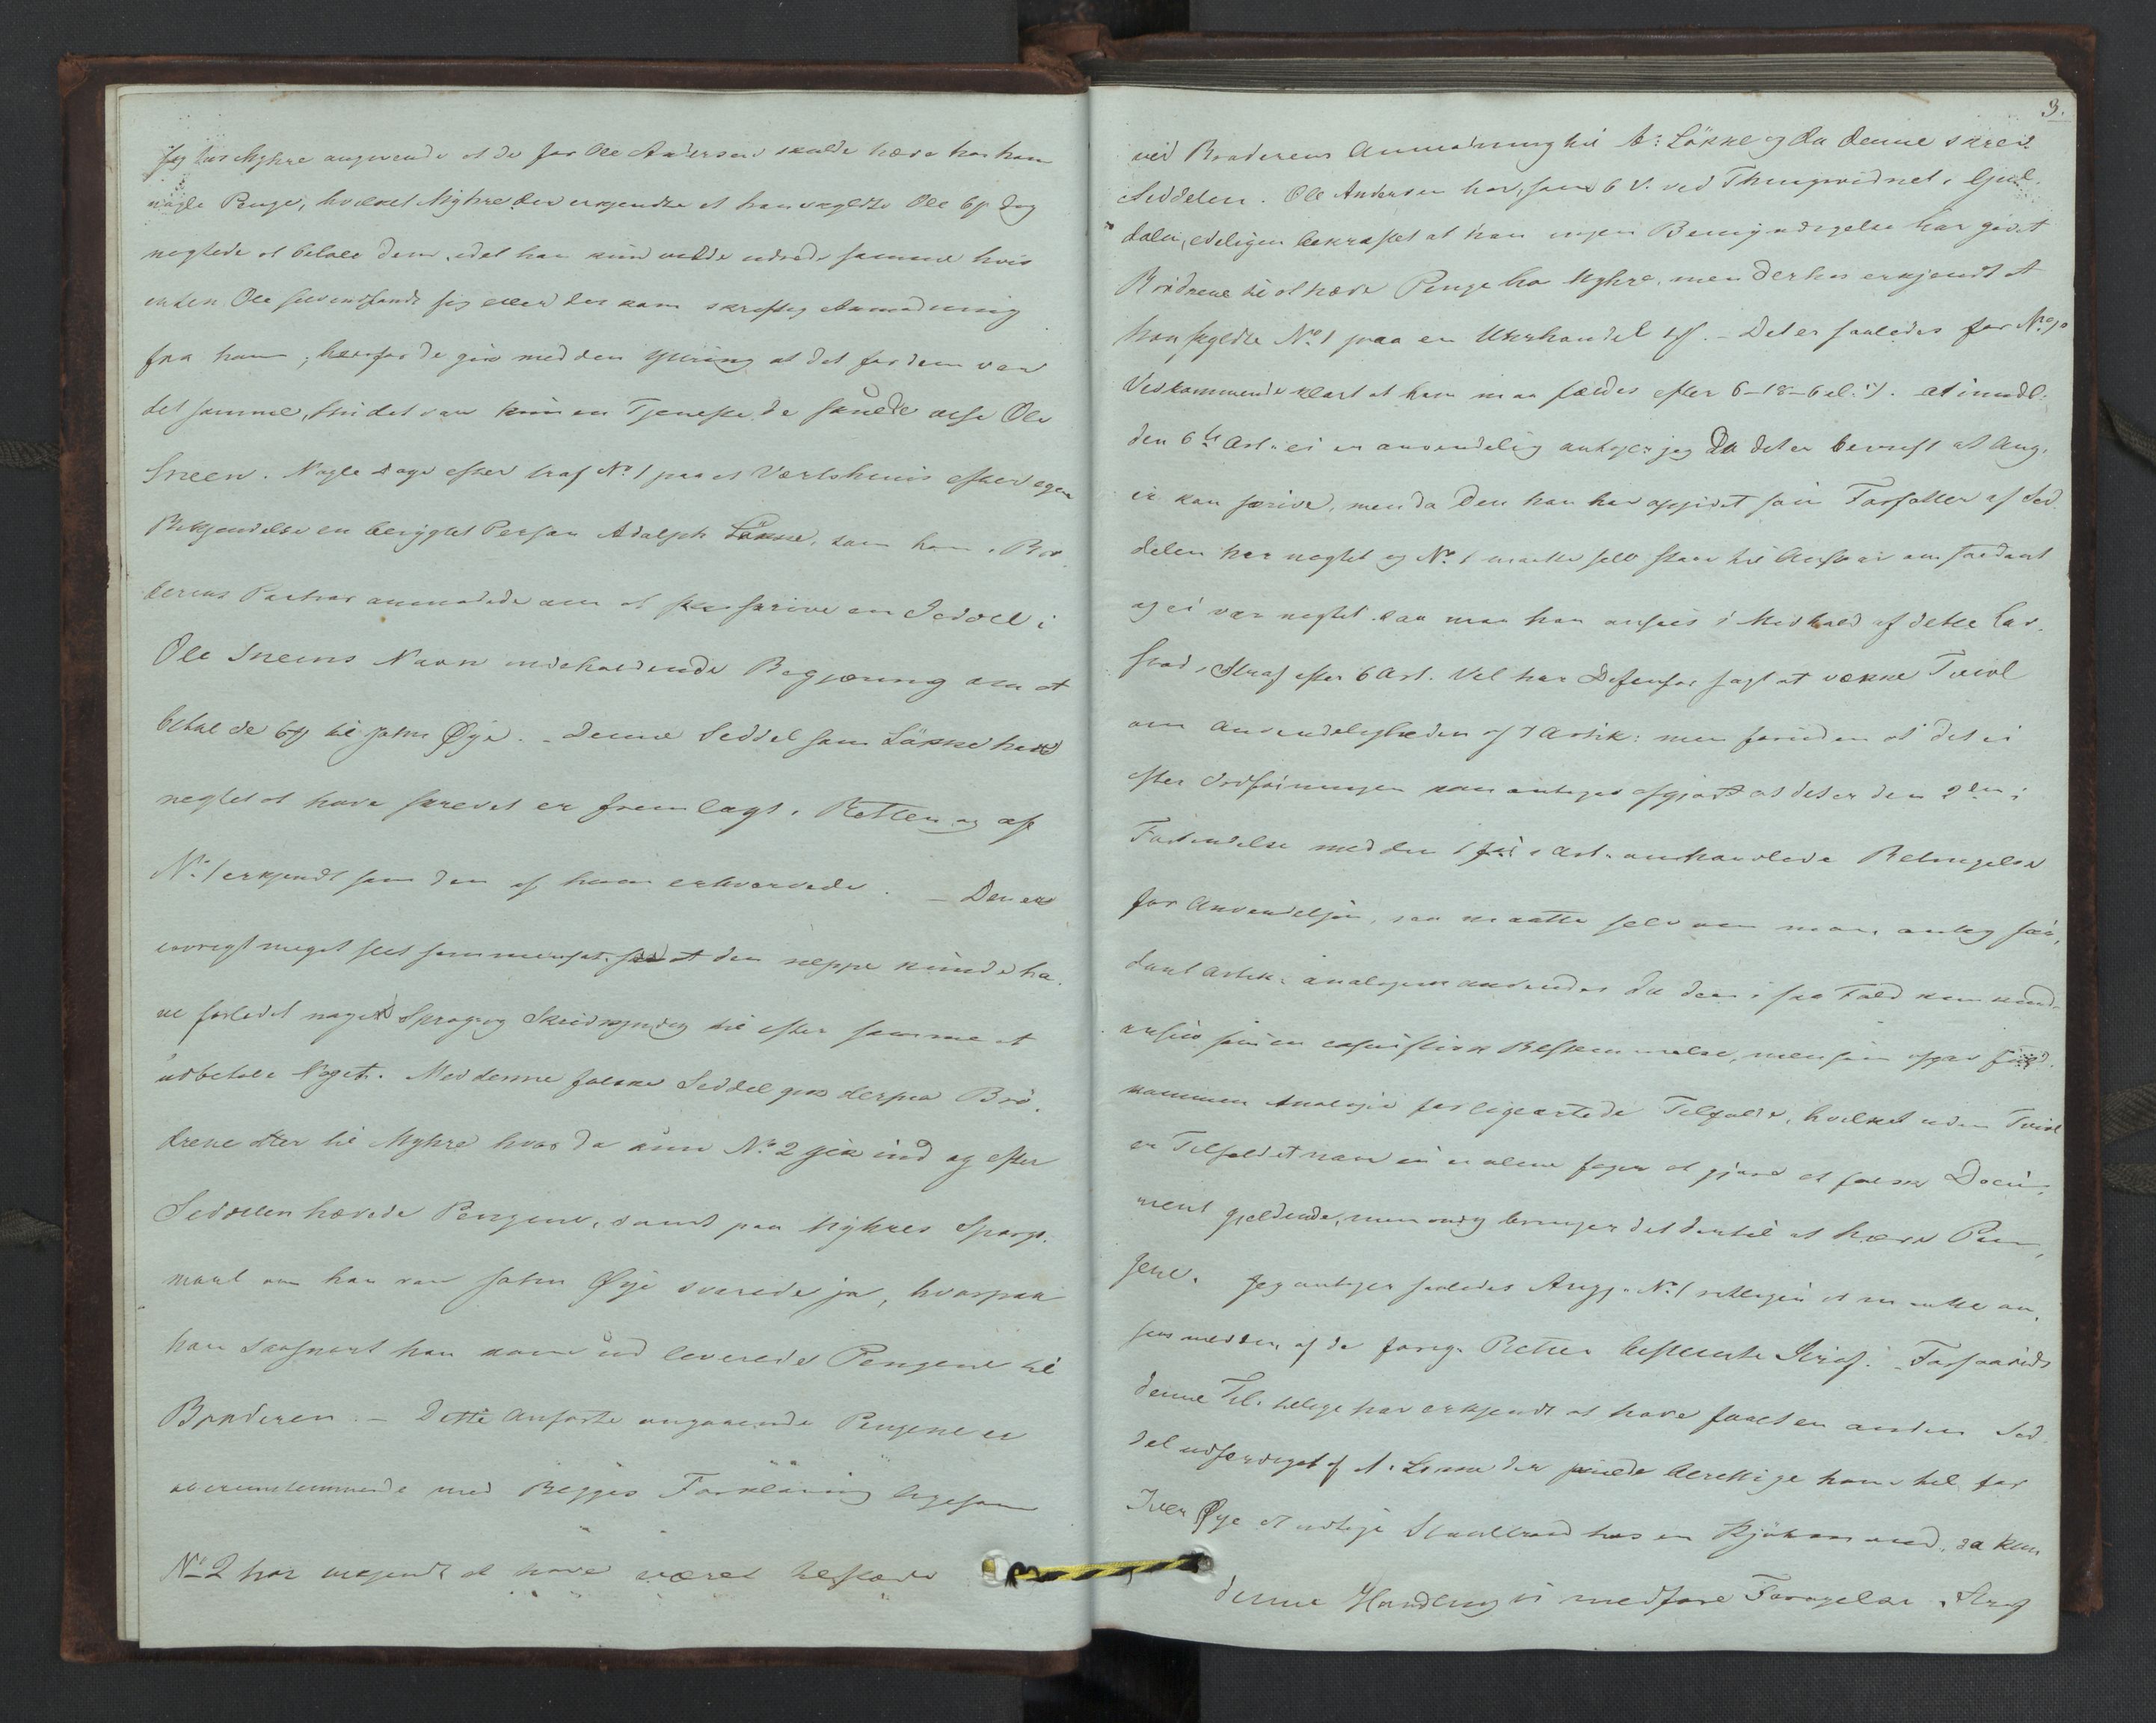 hos Myhre angivende at de for Ole Andersen skulde hæve hos ham
nogle Penge, hvilket Myhre der erkjendte at han skyldte Ole 6
negtede at betale dem, idet han kun vilde udrede samme hvis
enten Ole selv indfandt sig eller der kom skriftlig Anmodning
fra ham, herfor de gik med den Ytring at det for dem var
det samme, thi det var kun en Tjeneste de skulde vise Ole
Sneen. Nogle Dage efter traf No 1 paa et Værtshuus efter egen
Bekjendelse en berygtet Person Adolph Løkke, som han i Bro-
derens Paahør anmodede om at skrive en Seddel i
Ole Sneens Navn indeholdende Begjæring om at
betale de 6 til John Øye. – Denne Seddel som Løkke har
negtet at have skrevet er fremlagt i Retten og af
No 1 erkjendt som den af ham erhvervede. – Den er
iøvrigt meget slet sammensat, at den neppe kunde ha-
ve forledet nogen Sprog og Skrivkyndig til efter samme at
udbetale Noget. Med denne falske Seddel gik derpaa Brø-
drene atter til Myhre hvor da kun No 2 gik ind og efter
Seddelen hævede Pengene, samt paa Myhres Spørgs-
maal om han var John Øye svarede ja, hvorpaa
han saasnart han kom ud leverede Pengene til
Broderen. – Dette Anførte angaaende Pengene er
overeenstemmende med Begges Forklaring ligesom
No 2 har erkjendt at have været tilstede
3.
ved Broderens Anmodning til A: Løkke og da denne skrev
Seddelen. Ole Andersen har, som 6 V. ved Thingvidnet i
dalen, edeligen bekræftet at han ingen Bemyndigelse har givet
Brødrene til at hæve Penge hos Myhre, men derhos erkjendt at
han skyldte No 1 paa en Uhrhandel – Det er saaledes for No 1
Vedkommende klart at han maa fældes efter 6–18–6 at imidl.
den 6te Art. ei er anvendelig antager jeg da det er beviist at Ang.
ei kan skrive, men da den han har opgivet som Forfatter af Sed-
delen har negtet og No 1 maatte selv staae til Ansvar om saadant
og ei var negtet saa maa han ansees i Medhold af dette Lov-
sted, Straf efter 6 Art. Vel har Defensor søgt at vække Tvivl
om Anvendeligheden af 7 Artik: men foruden at det ei
efter Ordføiningen kan antages afgjort at det er den 2den i
Forbindelse med den i Art. omhandlede Betingelse
for Anvendelsen, saa maatte selv om man antog saa-
dant Artik: analogisk anvendes da den i saa Fald kun kunde
ansees som en casuistisk Bestemmelse, men som opgav
kommen Analogie for ligeartede Tilfælde, hvilket uden Tvivl
er Tilfældet naar ei alene søger at gjøre et falsk Docu-
ment gjeldende, men endog bringer det dertil at hæve Pen-
gene. Jeg antager saaledes Angj. No 1 rettelig at maatte an-
sees med den af de forrige Retter bestemte Straf. Forsaavidt
denne Til. tillige har erkjendt at have faaet en anden Sed-
del udfærdiget af A. Løkke der skulde berettige ham til for
Iver Øye at udtage hos en Kjøbmand, saa kan
denne Handling ei medføre Forøgelse i Straf